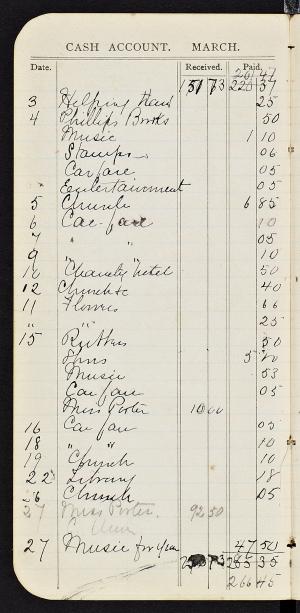 CASH ACCOUNT. MARCH.
Date. Received. Paid.
151 73
3 Helping Hand 25
4 Phillips Books 50
Music 1 10
Stamps 06
Carfare 05
Entertainment 05
5 Church 6 85
6 Car-fare 10
7 " " 05
9 " 10
10 "Charity" ticket 50
12 Church &c 40
11 Flowers 66
" " 25
15 Rubbers 50
Music 53
Car fare 05
Miss Porter 10 00
16 Car fare 05
18 " " 10
19 Church 10
22 Library 18
26 Church 05
27 Miss Porter. 92 50
27 Music for year 47 50
266 45